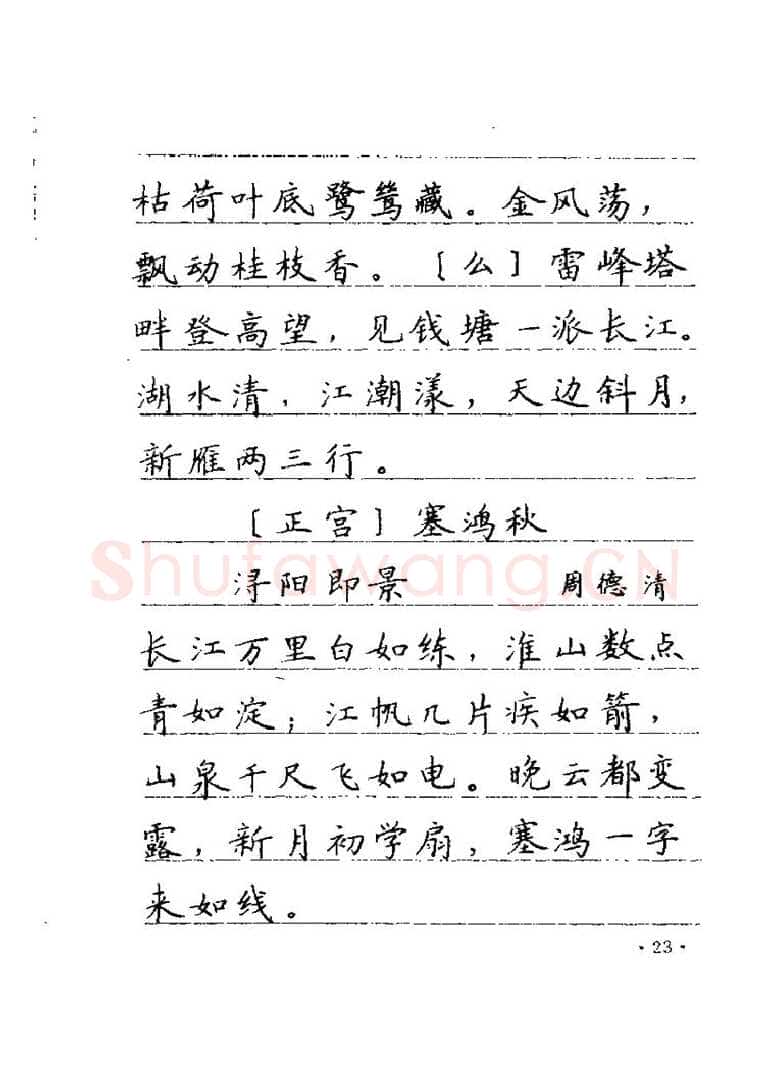 枯荷叶底鹭鸶藏。金风荡，
飘动桂枝香。〔么〕雷峰塔
畔登高望，见钱塘一派长江。
湖水清，江潮漾，天边斜月，
新雁两三行。
〔正宫〕塞鸿秋
浔阳即景 周德清
长江万里白如练，淮山数点
青如淀；江帆几片疾如箭，
山泉千尺飞如电。晚云都变
露，新月初学扇，塞鸿一字
来如线。
·23·
Shufawang.CN